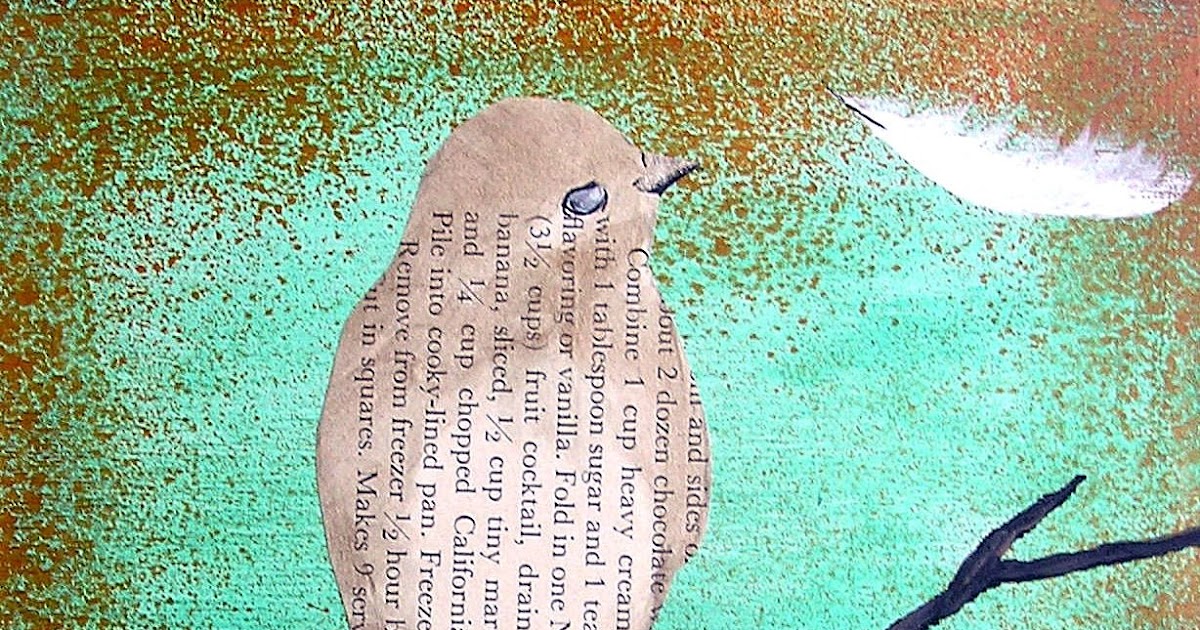 and sides o
out 2 dozen chocolate w
Combine 1 cup heavy cream
with 1 tablespoon sugar and 1 tea
flavoring or vanilla. Fold in one
(3½ cups) fruit cocktail, drain
banana, sliced, ½ cup tiny mar
and ¼ cup chopped Californi
Pile into cooky-lined pan. Freeze
Remove from freezer ½ hour
ut in squares. Makes 9 serv